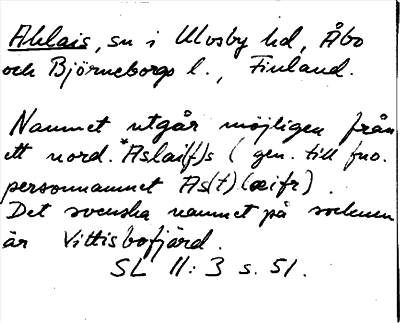 Ahlais, sn i Ulvsby hd, Åbo
och Björneborgs l., Finland.
Namnet utgår möjligen från
ett nord. *Aslai(f)s (gen. till fno.
personnamnet As(t)(æifr).
Det svenska namnet på socknen
är Vittisbofjärd.
SL II:3 s. 51.